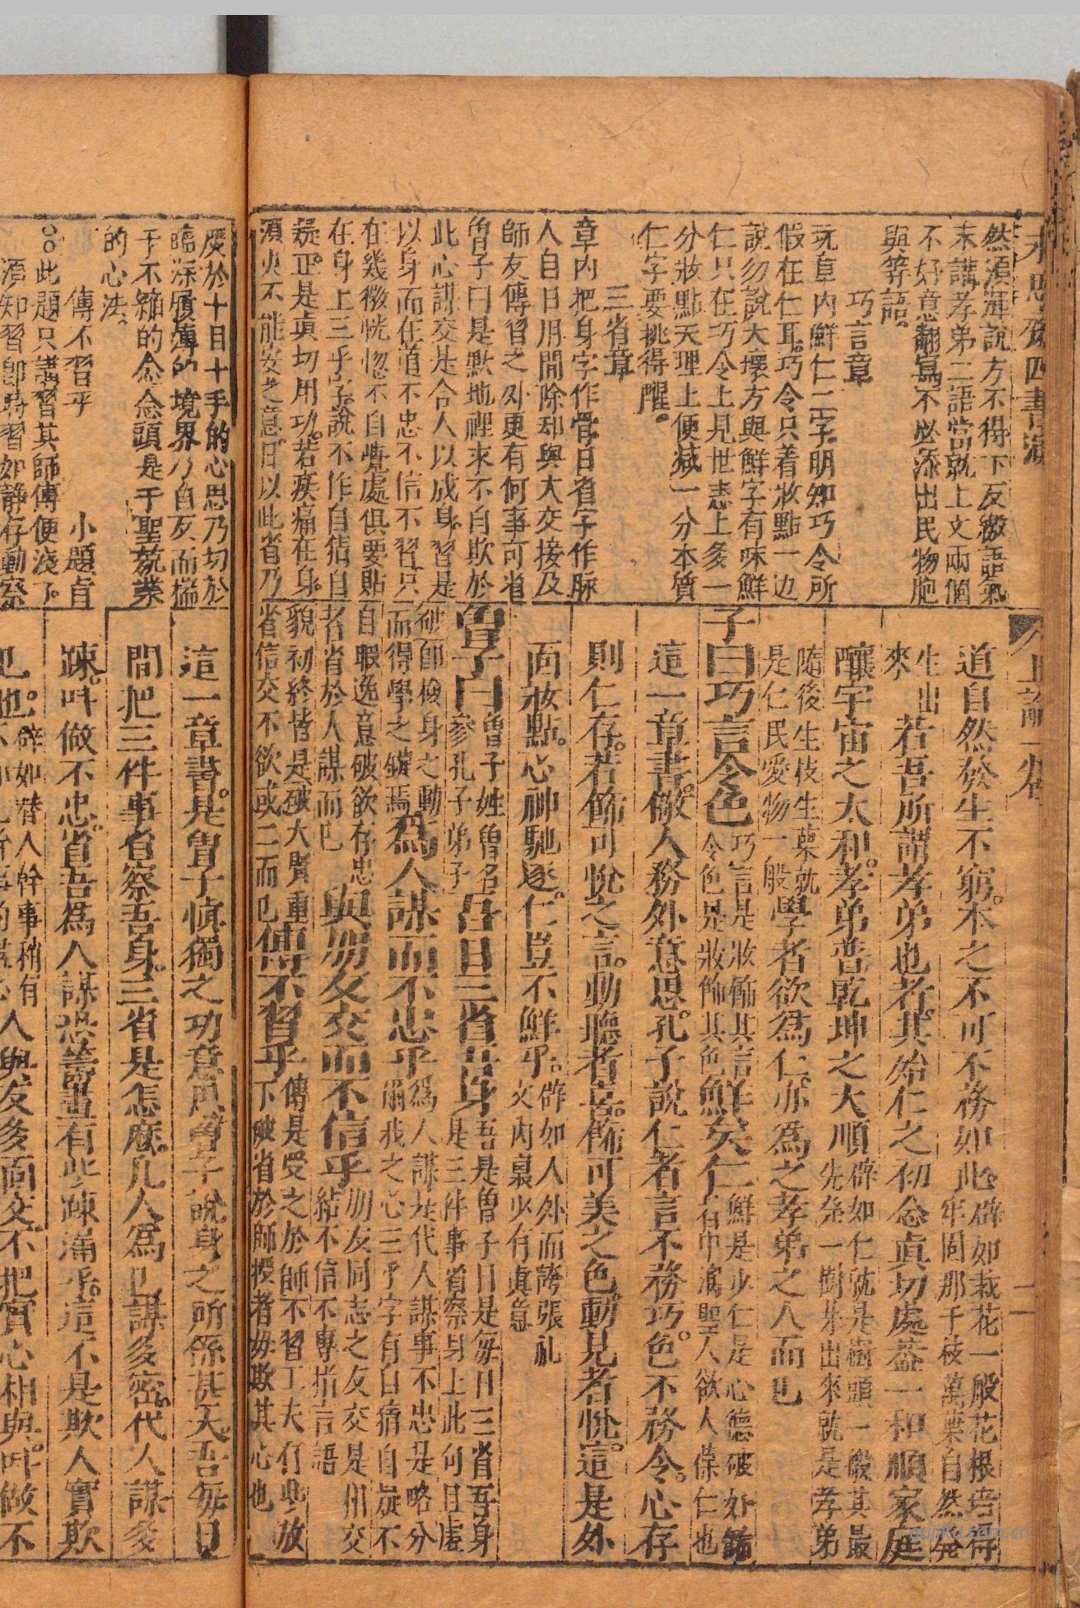 然須渾說方不得下反繳語氣
末講孝弟二語當就上文兩個
不好意翻寫不必添出民物胞
與等語。
巧言章
玩章內鮮仁二字明知巧令所
假在仁耳。巧令只着妝點一边
說勿說大壞方與鮮字有味鮮
仁只在巧令上見世悲上多一
分妝點天理上便减一分本質
仁字要挑得醒。
三省章
章內把身字作骨日省字作脉
人自日用間除却與大交接及
師友傳習之外更有何事可省
曾子曰是默地裡求不自欺於
此心謂交是合人以成身習是
以身而在道不忠不信不習只
在幾微恍惚不自覺處俱要貼
在身上三乎字說不作自猜自
疑正是真切用功若疾痛在身
須臾不能安之意曰以此省乃
道自然發生不窮。本之不可不務如此
辟如栽花一般花根培得
牢固那千枝萬葉自然發
生出
來
若吾所謂孝弟也者其始仁之初念真切處蓋一和順家庭
釀宇宙之太和。孝弟普乾坤之大順
辟如仁就是樹頭一般其最
先發一樹茶出來就是孝弟
隨後生枝生葉就
是仁民愛物一般
學者欲為仁亦為之孝弟之人而已
子曰巧言令色
巧言是妝俻其言
令色是妝俻其色
鮮矣仁
鮮是少仁是心德破好諭
言巧瀉聖人欲人葆仁也
這一章書。儆人務外意思。孔子說仁者言不務巧。色不務令。心存
則仁存。若餙可悅之言。動聽者喜。餙可美之色動見者悅。這是外
面妝點。心神馳逐。仁豈不鮮乎。
辟如人外而誇張礼
文內裏少有真意
曾子曰
曾子姓曾名
參孔子弟子
吾日三省吾身
吾是曾子日是每日三省吾身
是三件事省察身上此句且虛
破即檢身之動
而得學之鏻焉
為人謀而不忠乎
為人謀是代人謀事不忠是略分
爾我之心三乎字有自猜自疑不
自暇逸意破欲存忠
者省於人謀而巳
與朋友交而不信乎
朋友同志之友交是相交
結不信不專指言語
貌初終皆是破大賢重
省信交不欲或二而巳
傳不習乎
傳是受之於師不習工夫有此放
下破省於師授者毋欺其心也
嚴於十目十手的心思乃切於
臨深履薄的境界乃自反而惴
于不雜的念念頭是千聖兢業
的心法。
傳不習乎 小題旨
○○此題只講習其師傳便淺了。
須知習即時習如靜存動察
這一章書。是曾子慎獨之功意思曾子說身之所係甚大。吾每日
間把三件事省察吾身。三省是怎麽几人為己謀多密。代人謀多
疎。呌做不忠。省吾為人謀恐籌畫有些疎漏乎。這不是欺人實欺
人與友多面交不把實心相與。呌做不